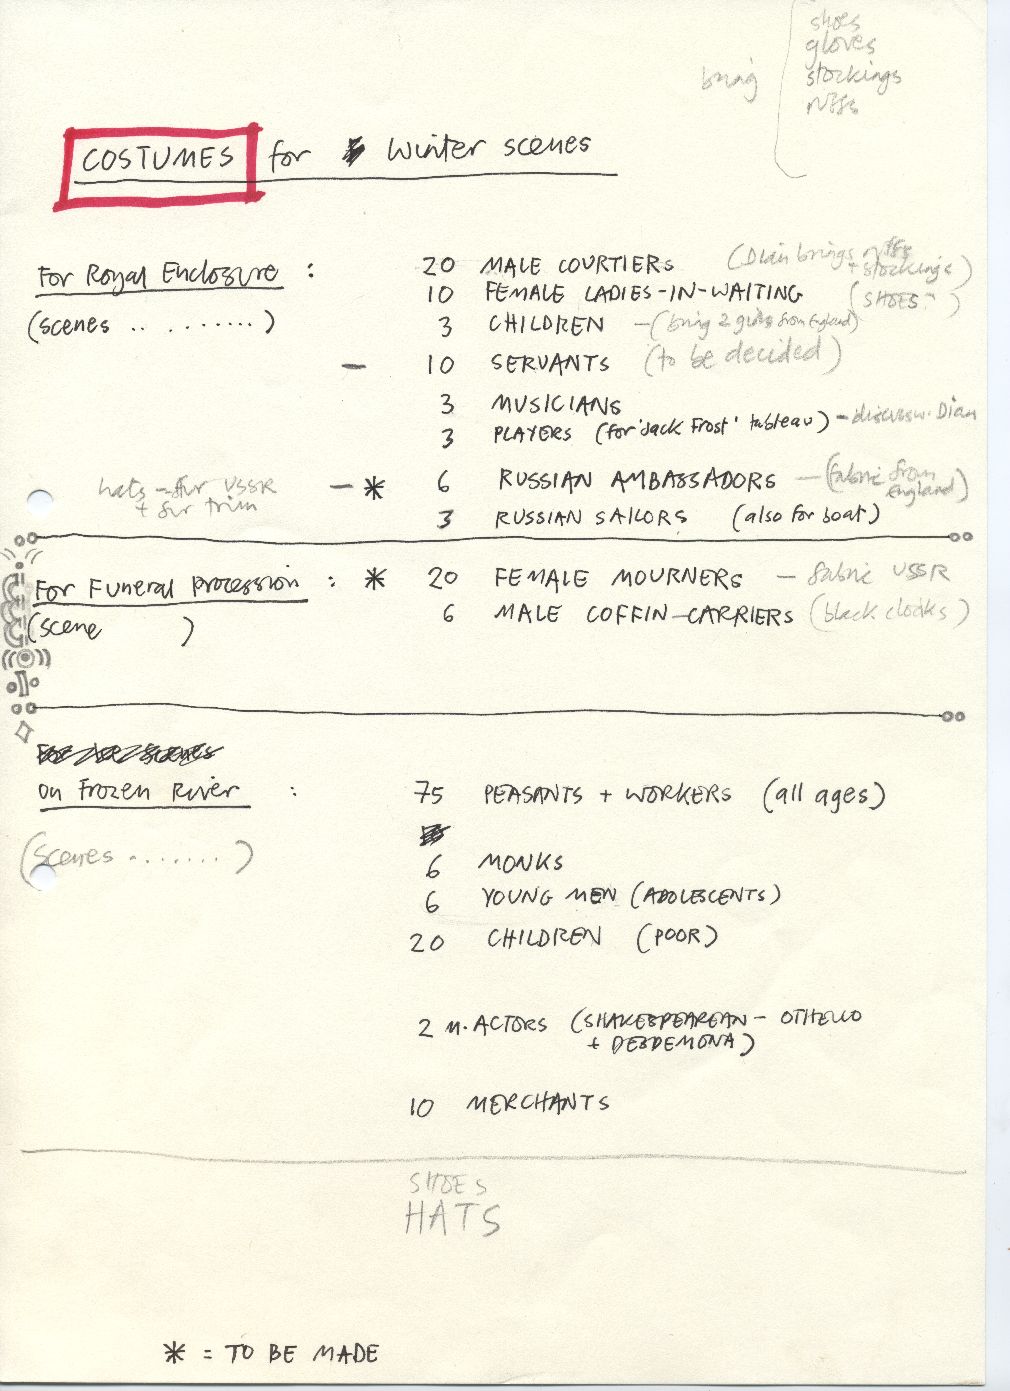 shoes
gloves
bring
stockings
ruffs
COSTUMES for Winter scenes
For Royal Enclosure :
(scenes .. ........)
20 MALE COURTIERS (Dian brings ruffs + stockings)
10 FEMALE LADIES-IN-WAITING (SHOES)
3 CHILDREN - (bring 2 from England)
- 10 SERVANTS (to be decided)
3 MUSICIANS
3 PLAYERS (for 'Jack Frost' tableau) - discuss w. Dian
hats - fur USSR
+ fur trim
- * 6 RUSSIAN AMBASSADORS - (fabric from England)
3 RUSSIAN SAILORS (also for boat)
For Funeral Procession : * 20 FEMALE MOURNERS - fabric USSR
(scene )
6 MALE COFFIN-CARRIERS (black cloaks)
on Frozen River :
75 PEASANTS + WORKERS (all ages)
(scenes .......)
6 MONKS
6 YOUNG MEN (ADOLESCENTS)
20 CHILDREN (POOR)
2 M. ACTORS (SHAKESPEAREAN - OTHELLO
+ DESDEMONA)
10 MERCHANTS
SHOES
HATS
* = TO BE MADE